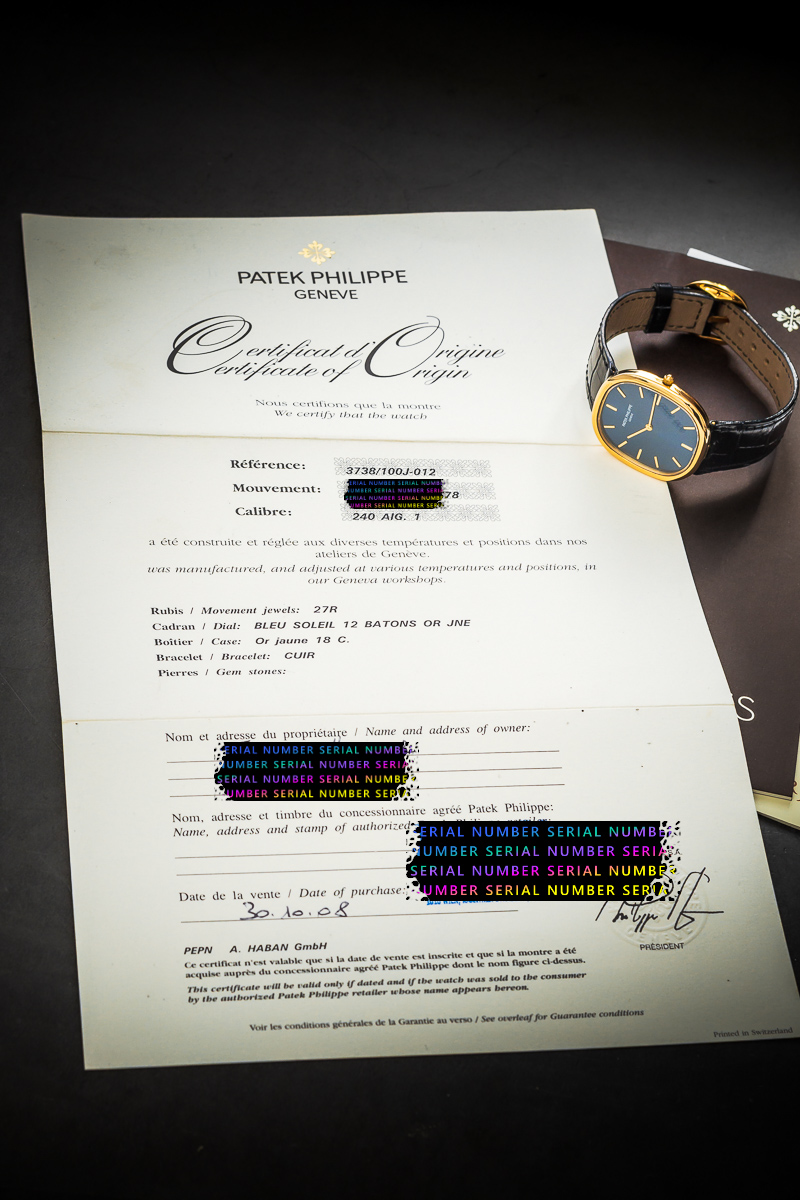 PATEK PHILIPPE
GENEVE
Certificat d'Origine
Certificate of Origin
Nous certifions que la montre
We certify that the watch
Référence: 3738/100J-012
Mouvement: 78
SERIAL NUMBER SERIAL NUMB
NUMBER SERIAL NUMBER SERI
SERIAL NUMBER SERIAL NUMB
NUMBER SERIAL NUMBER SERI
Calibre: 240 AIG. 1
a été construite et réglée aux diverses températures et positions dans nos
ateliers de Genève.
was manufactured, and adjusted at various temperatures and positions, in
our Geneva workshops.
Rubis / Movement jewels: 27R
Cadran / Dial: BLEU SOLEIL 12 BATONS OR JNE
Boîtier / Case: Or jaune 18 C.
Bracelet / Bracelet: CUIR
Pierres / Gem stones:
Nom et adresse du propriétaire / Name and address of owner:
SERIAL NUMBER SERIAL NUMBE
NUMBER SERIAL NUMBER SERIA
SERIAL NUMBER SERIAL NUMBE
NUMBER SERIAL NUMBER SERIA
Nom, adresse et timbre du concessionnaire agréé Patek Philippe:
Name, address and stamp of authorized retailer:
SERIAL NUMBER SERIAL NUMBE
NUMBER SERIAL NUMBER SERIA
SERIAL NUMBER SERIAL NUMBE
NUMBER SERIAL NUMBER SERIA
Date de la vente / Date of purchase:
30.10.08
PRÉSIDENT
PEPN A. HABAN GmbH
Ce certificat n'est valable que si la date de vente est inscrite et que si la montre a été
acquise auprès du concessionnaire agréé Patek Philippe dont le nom figure ci-dessus.
This certificate will be valid only if dated and if the watch was sold to the consumer
by the authorized Patek Philippe retailer whose name appears hereon.
Voir les conditions générales de la Garantie au verso / See overleaf for Guarantee conditions
Printed in Switzerland
PATEK PHILIPPE
GENEVE
S